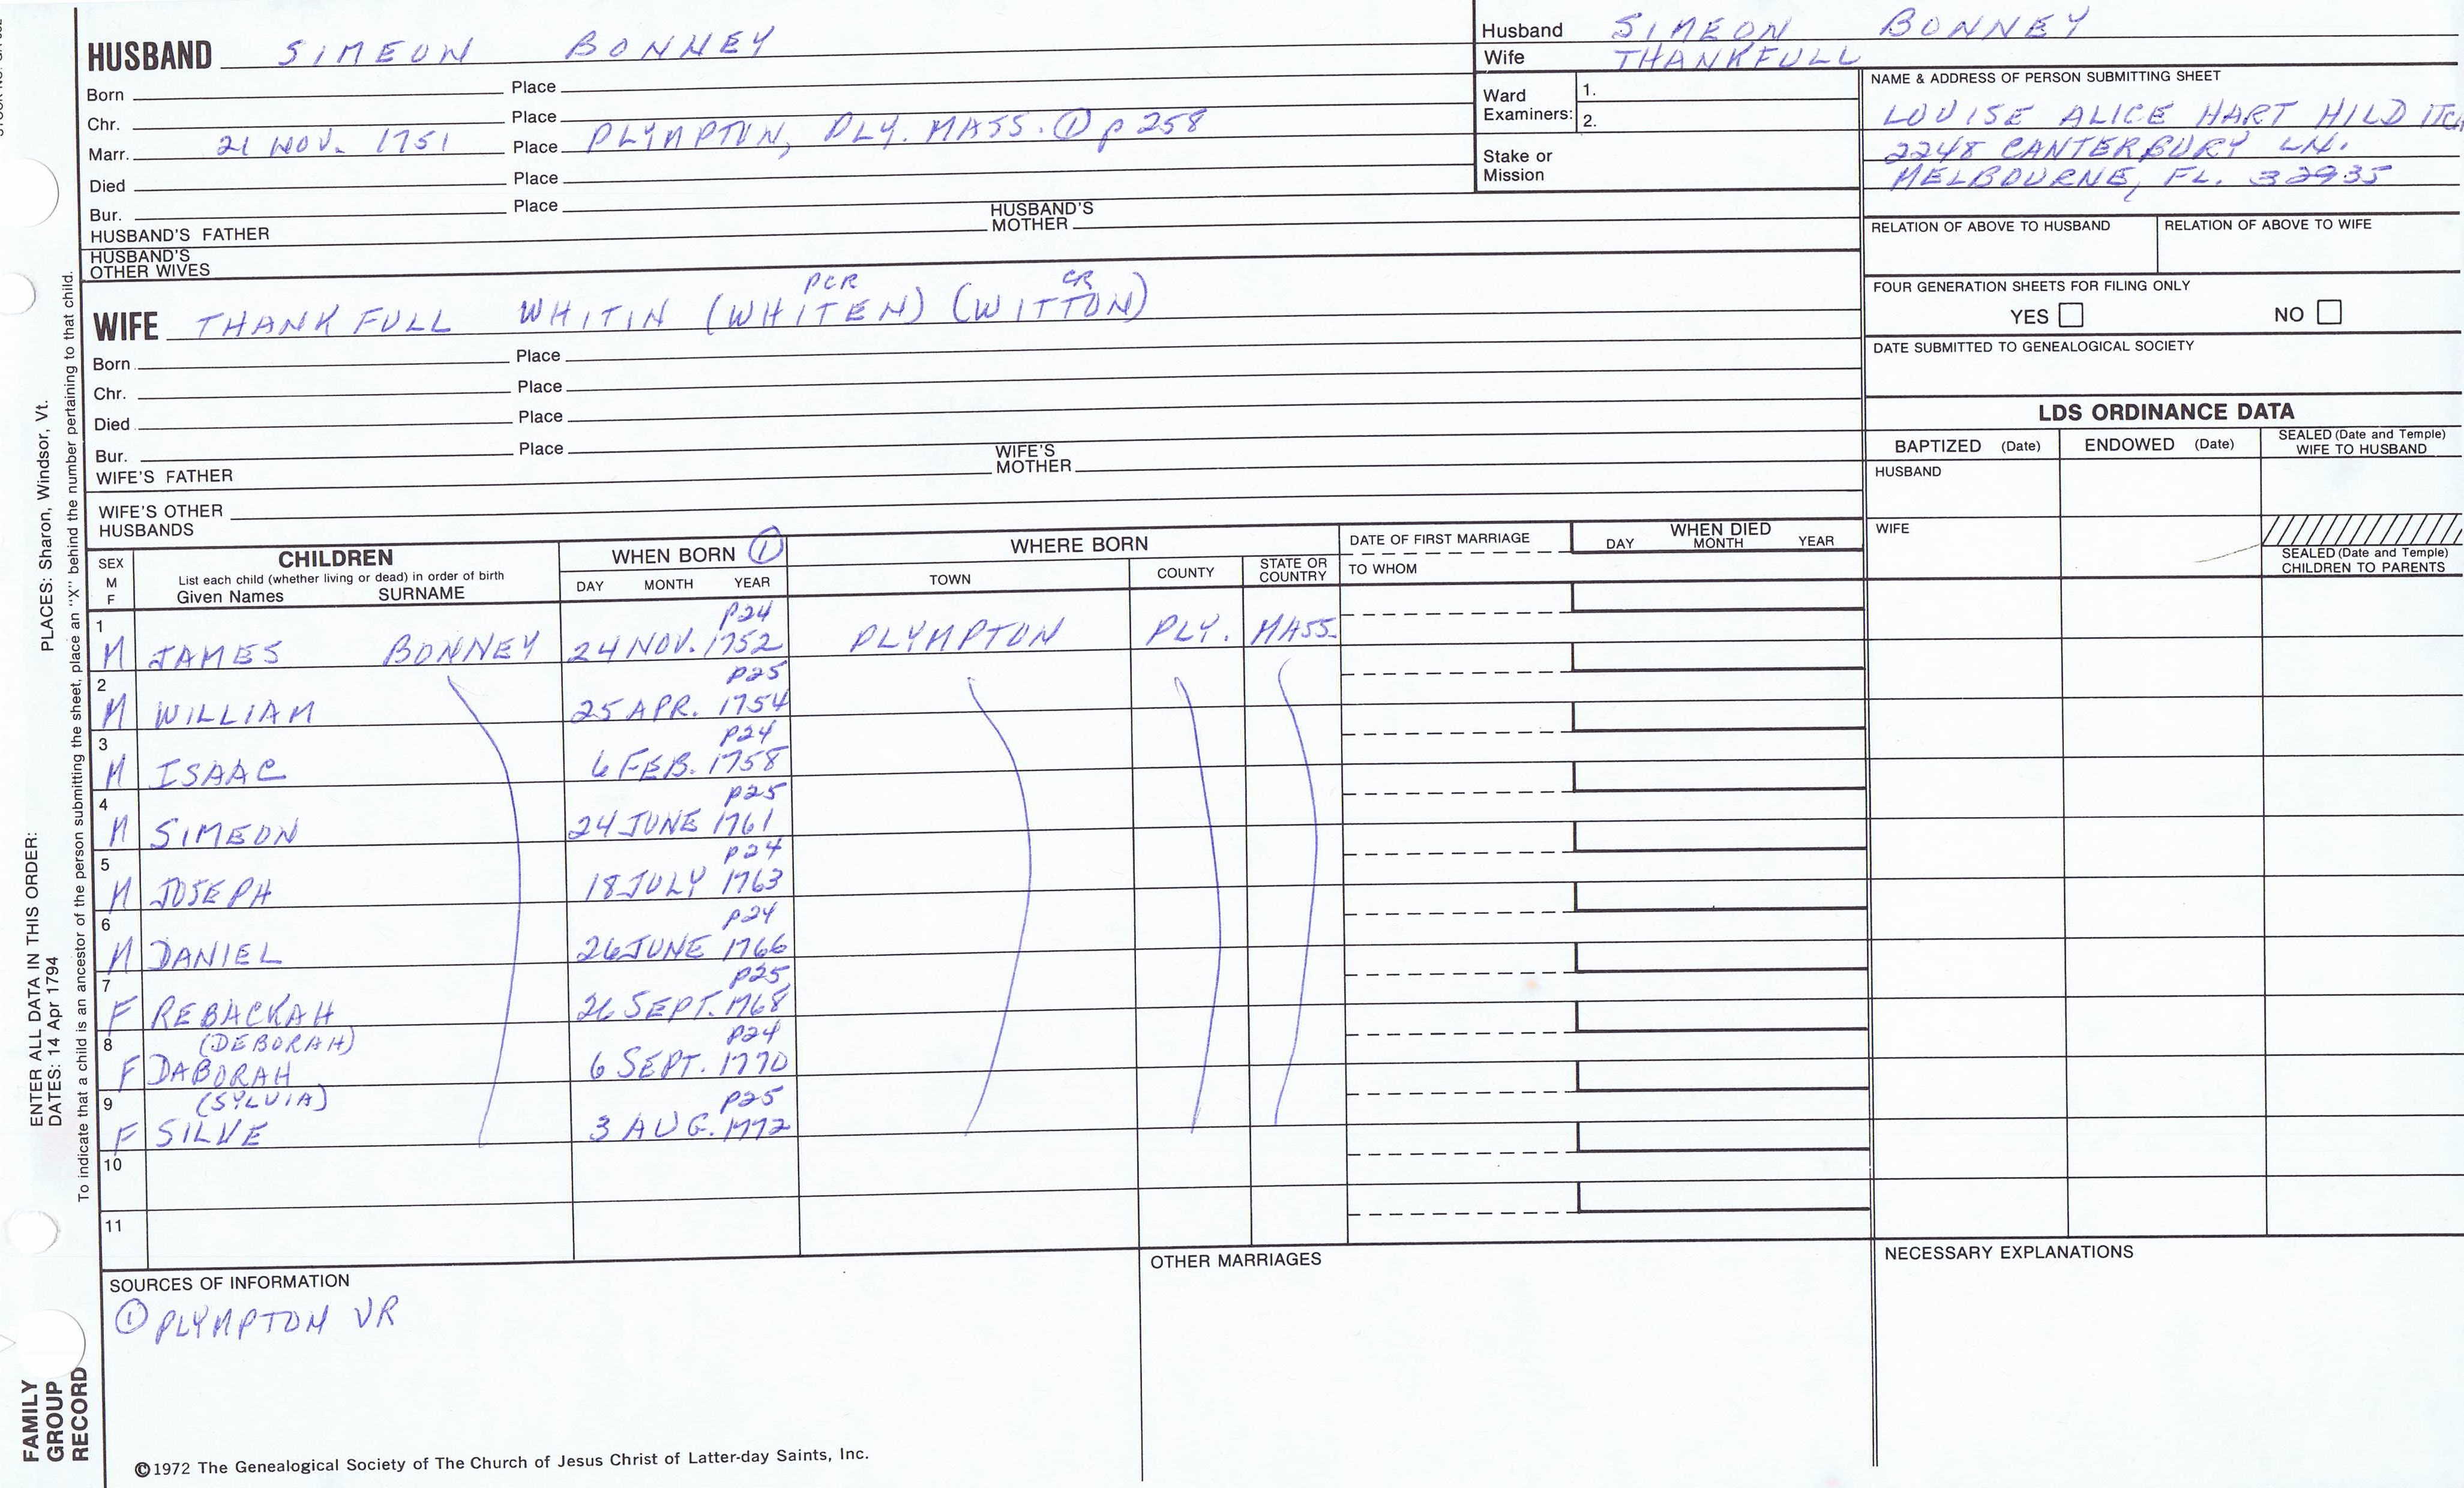 HUSBAND SIMEON BONNEY
Born Place
Chr. Place
Marr. 21 NOV. 1751 Place PLYMPTON, PLY. MASS. ① p 258
Died Place
Bur. Place
HUSBAND'S FATHER HUSBAND'S MOTHER
HUSBAND'S OTHER WIVES
Husband SIMEON BONNEY
Wife THANKFULL
Ward Examiners: 1.
2.
Stake or Mission
NAME & ADDRESS OF PERSON SUBMITTING SHEET
LOUISE ALICE HART HILDITCH
2248 CANTERBURY LN.
MELBOURNE, FL. 32935
RELATION OF ABOVE TO HUSBAND RELATION OF ABOVE TO WIFE
FOUR GENERATION SHEETS FOR FILING ONLY
YES NO
DATE SUBMITTED TO GENEALOGICAL SOCIETY
PCR CR
WIFE THANKFULL WHITIN (WHITEN) (WITTON)
Born Place
Chr. Place
Died Place
Bur. Place
WIFE'S FATHER WIFE'S MOTHER
WIFE'S OTHER HUSBANDS
LDS ORDINANCE DATA
BAPTIZED (Date) ENDOWED (Date) SEALED (Date and Temple) WIFE TO HUSBAND
HUSBAND
WIFE
SEALED (Date and Temple) CHILDREN TO PARENTS
SEX M F CHILDREN WHEN BORN ① WHERE BORN DATE OF FIRST MARRIAGE WHEN DIED
List each child (whether living or dead) in order of birth
Given Names SURNAME DAY MONTH YEAR TOWN COUNTY STATE OR COUNTRY TO WHOM DAY MONTH YEAR
p24
1 M JAMES BONNEY 24 NOV. 1752 PLYMPTON PLY. MASS.
p25
2 M WILLIAM 25 APR. 1754
p24
3 M ISAAC 6 FEB. 1758
p25
4 M SIMEON 24 JUNE 1761
p24
5 M JOSEPH 18 JULY 1763
p24
6 M DANIEL 26 JUNE 1766
p25
7 F REBACKAH 26 SEPT. 1768
(DEBORAH) p24
8 F DABORAH 6 SEPT. 1770
(SYLVIA) p25
9 F SILVE 3 AUG. 1772
10
11
SOURCES OF INFORMATION
① PLYMPTON VR
OTHER MARRIAGES
NECESSARY EXPLANATIONS
©1972 The Genealogical Society of The Church of Jesus Christ of Latter-day Saints, Inc.
FAMILY GROUP RECORD
ENTER ALL DATA IN THIS ORDER:
DATES: 14 Apr 1794
PLACES: Sharon, Windsor, Vt.
To indicate that a child is an ancestor of the person submitting the sheet, place an "X" behind the number pertaining to that child.